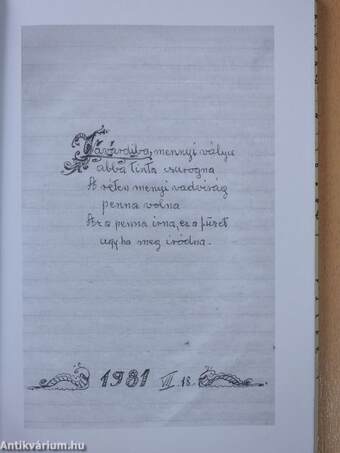 Távárdiba, mennyi vályu
abba tinta csurogna
A réten menyi vadvirág
penna volna
Az a penna írna, ez a füzet
ugy ha meg íródna.
1981 VII. 18.
Antikvárium.hu